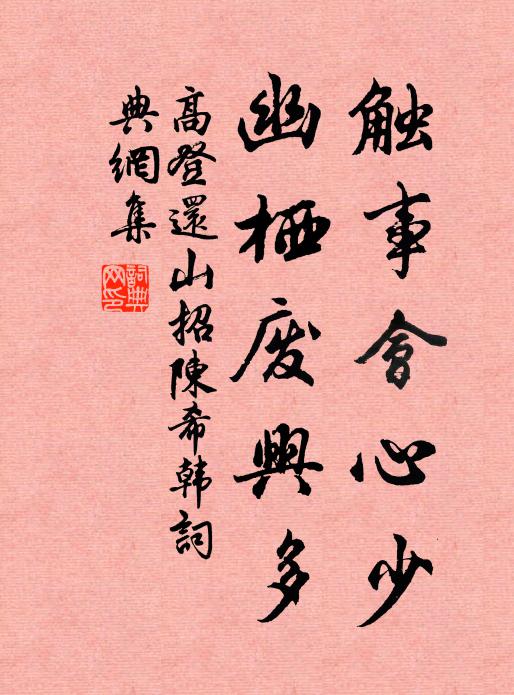 触事會心少
幽栖废興多
高登還山招陳希韩詞
典網集
詞典網印